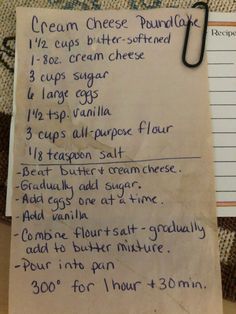 Cream Cheese Pound Cake
1 1/2 cups butter-softened
1-8oz. cream cheese
3 cups sugar
6 large eggs
1 1/2 tsp. vanilla
3 cups all-purpose flour
1/8 teaspoon salt
-Beat butter + cream cheese.
-Gradually add sugar.
-Add eggs one at a time.
-Add vanilla
-Combine flour + salt - gradually
add to butter mixture.
-Pour into pan
300° for 1 hour + 30 min.
Recipe